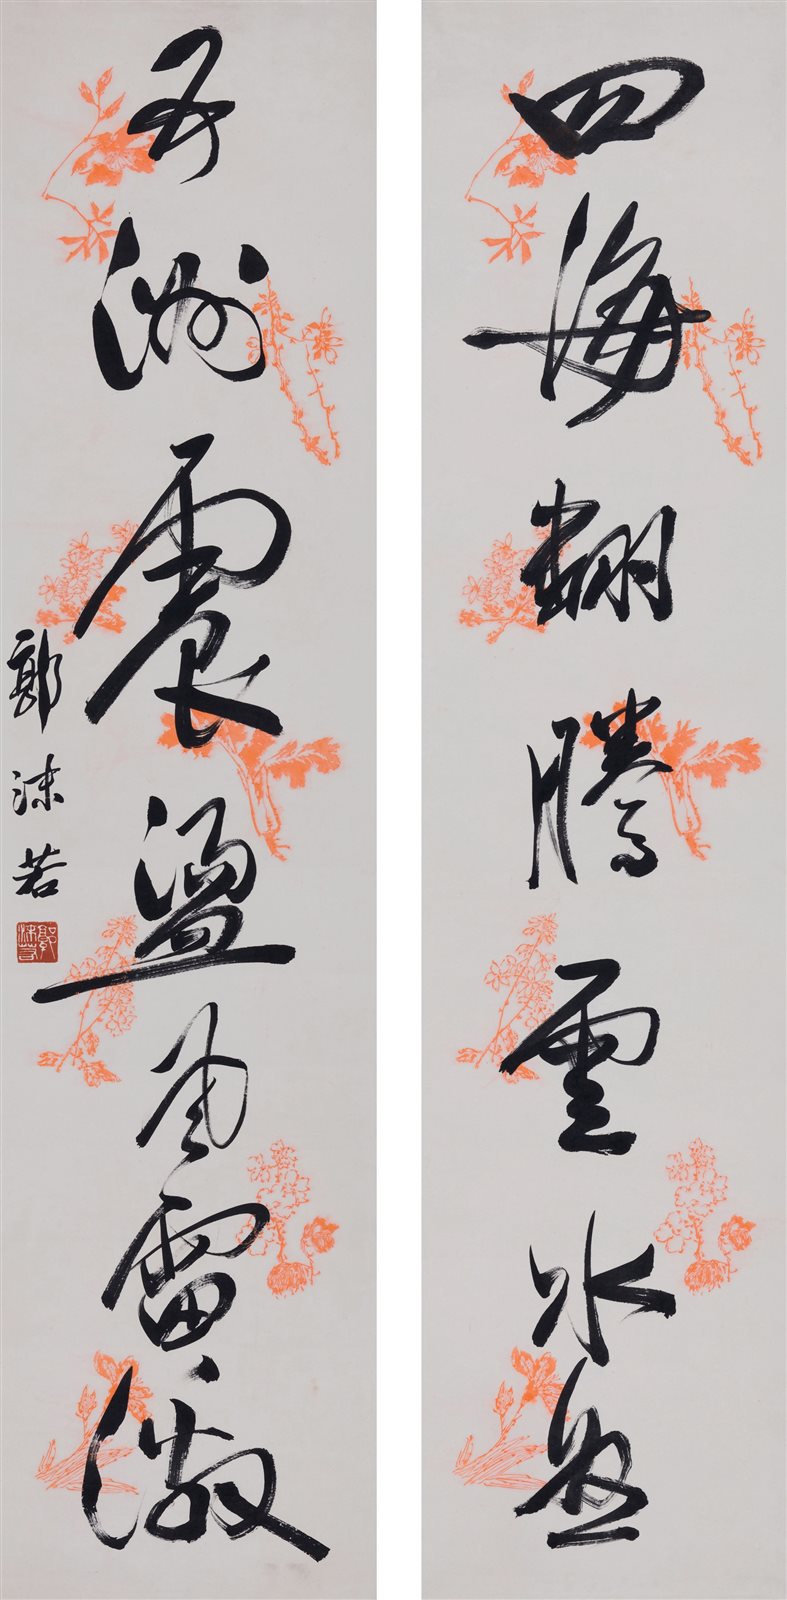 四海翻騰雲水怒
五洲震盪風雷激
郭沫若
郭沫若